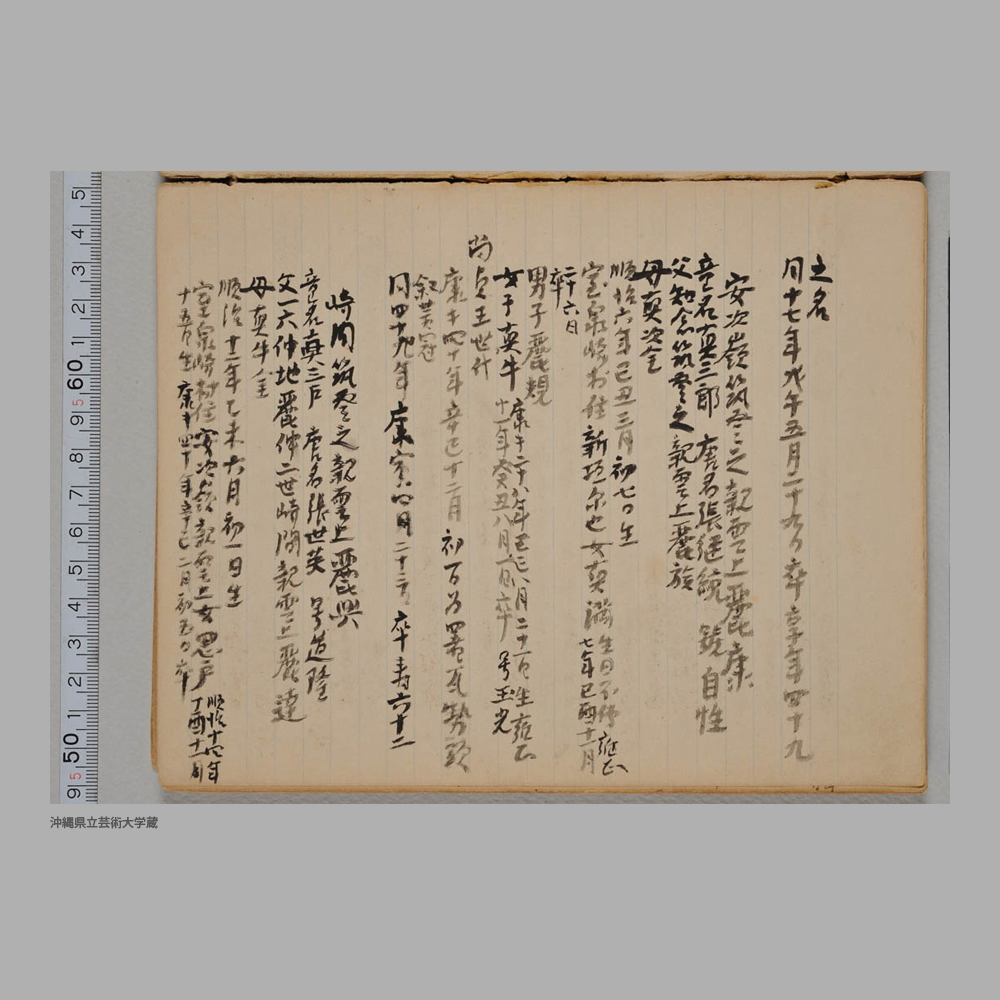 之名
同十七年戊午五月二十九日卒 享年四十九
安次嶺筑登之親雲上麗康
童名真三郎 唐名張継統 號自性
父知念筑登之親雲上麗族
母真次金
順治六年己丑三月初七日生
室泉崎村住新垣尓也女真満 生日不傳 雍正
七年己酉十二月
二十六日
卒
男子麗規
女子真牛 康熙二十八年己巳八月二十一日生 雍正
十一年癸丑八月 日卒 号玉光
尚貞王世代
康熙四十年辛巳十二月初一日為署瓦勢頭
叙黄冠
同四十九年庚寅四月二十三日卒 寿六十二
崎間筑登之親雲上麗興
童名真三戸 唐名張世英 号道隆
父一六仲地麗伸二世崎間親雲上麗達
母真牛金
順治十二年乙未六月初一日生
室泉崎村住安次嶺親雲上女思戸 順治十四年
丁酉十一月
十五日生 康熙四十年辛巳二月初五日卒
5 4 3 2 1 60 9 8 7 6 5 4 3 2 1 50 9
沖縄県立芸術大学蔵